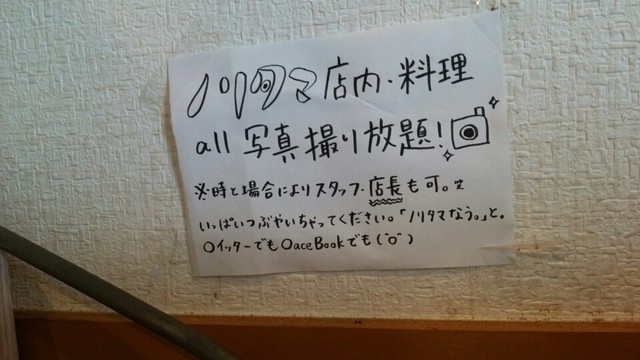 ノリタマ店内・料理
all 写真撮り放題!
※時と場合によりスタッフ・店長も可。
いっぱいつぶやいちゃってください。「ノリタマなう。」と。
〇イッターでも〇aceBookでも(^o^)